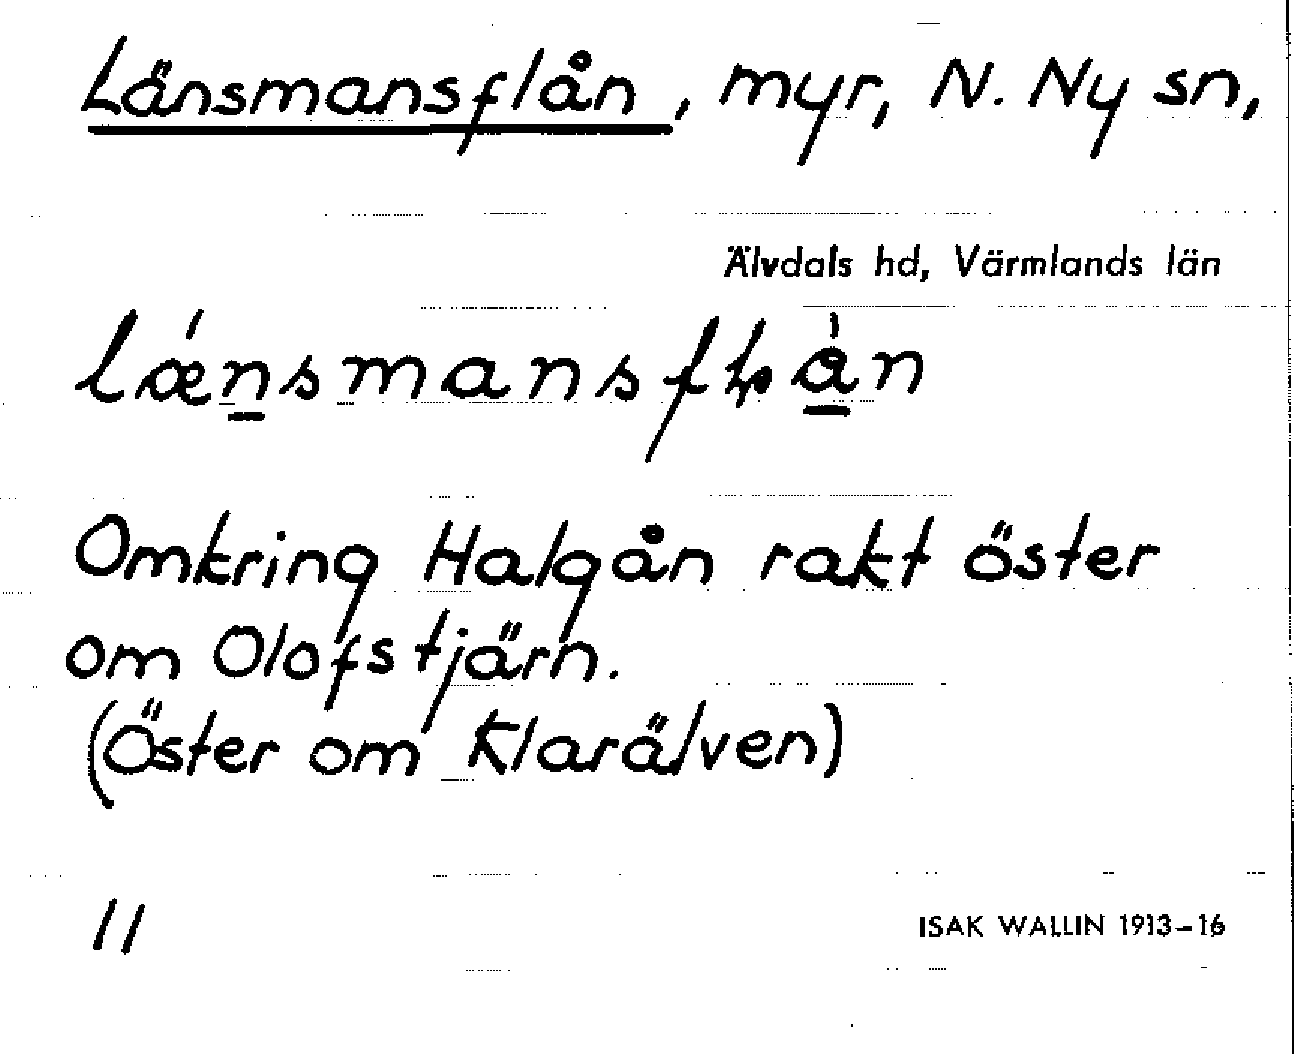 Länsmansflån, myr, N. Ny sn,
Älvdals hd, Värmlands län
Omkring Halgån rakt öster
om Olofstjärn.
(Öster om Klarälven)
11
ISAK WALLIN 1913-16